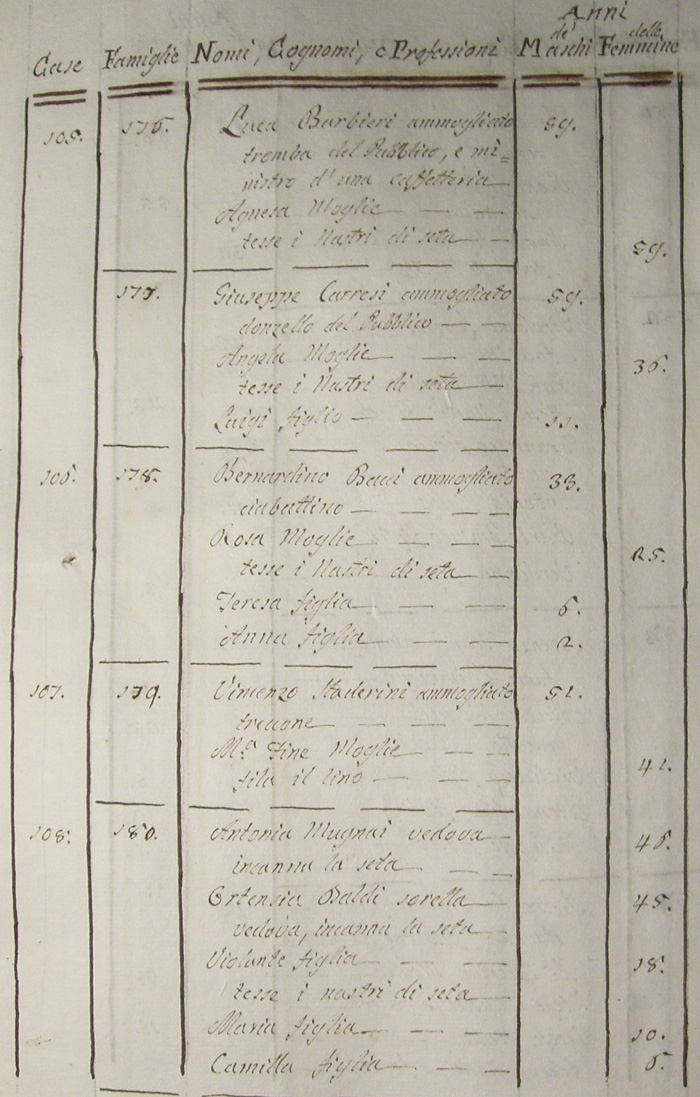 Anni
Case Famiglie Nomi, Cognomi, e Professioni di Maschi delle Femmine
105. 176. Luca Barbieri ammogliato 59.
tromba del Pubblico, e mi=
nistro d'una caffetteria
Agnesa Moglie
tesse i Nastri di seta 59.
177. Giuseppe Carresi ammogliato 59.
donzello del Pubblico
Angela Moglie 36.
tesse i Nastri di seta
Luigi figlio 11.
106. 178. Bernardino Bacci ammogliato 33.
ciabattino
Rosa Moglie 25.
tesse i Nastri di seta
Teresa figlia 6.
Anna figlia 2.
107. 179. Vincenzo Staderini ammogliato 51.
treccone
M.a Fine Moglie 41.
fila il lino
108. 180. Antonia Mugnai vedova 46.
incanna la seta
Ortensia Baldi sorella 45.
vedova, incanna la seta
Violante figlia 18.
tesse i nastri di seta
Maria figlia 10.
Camilla figlia 6.